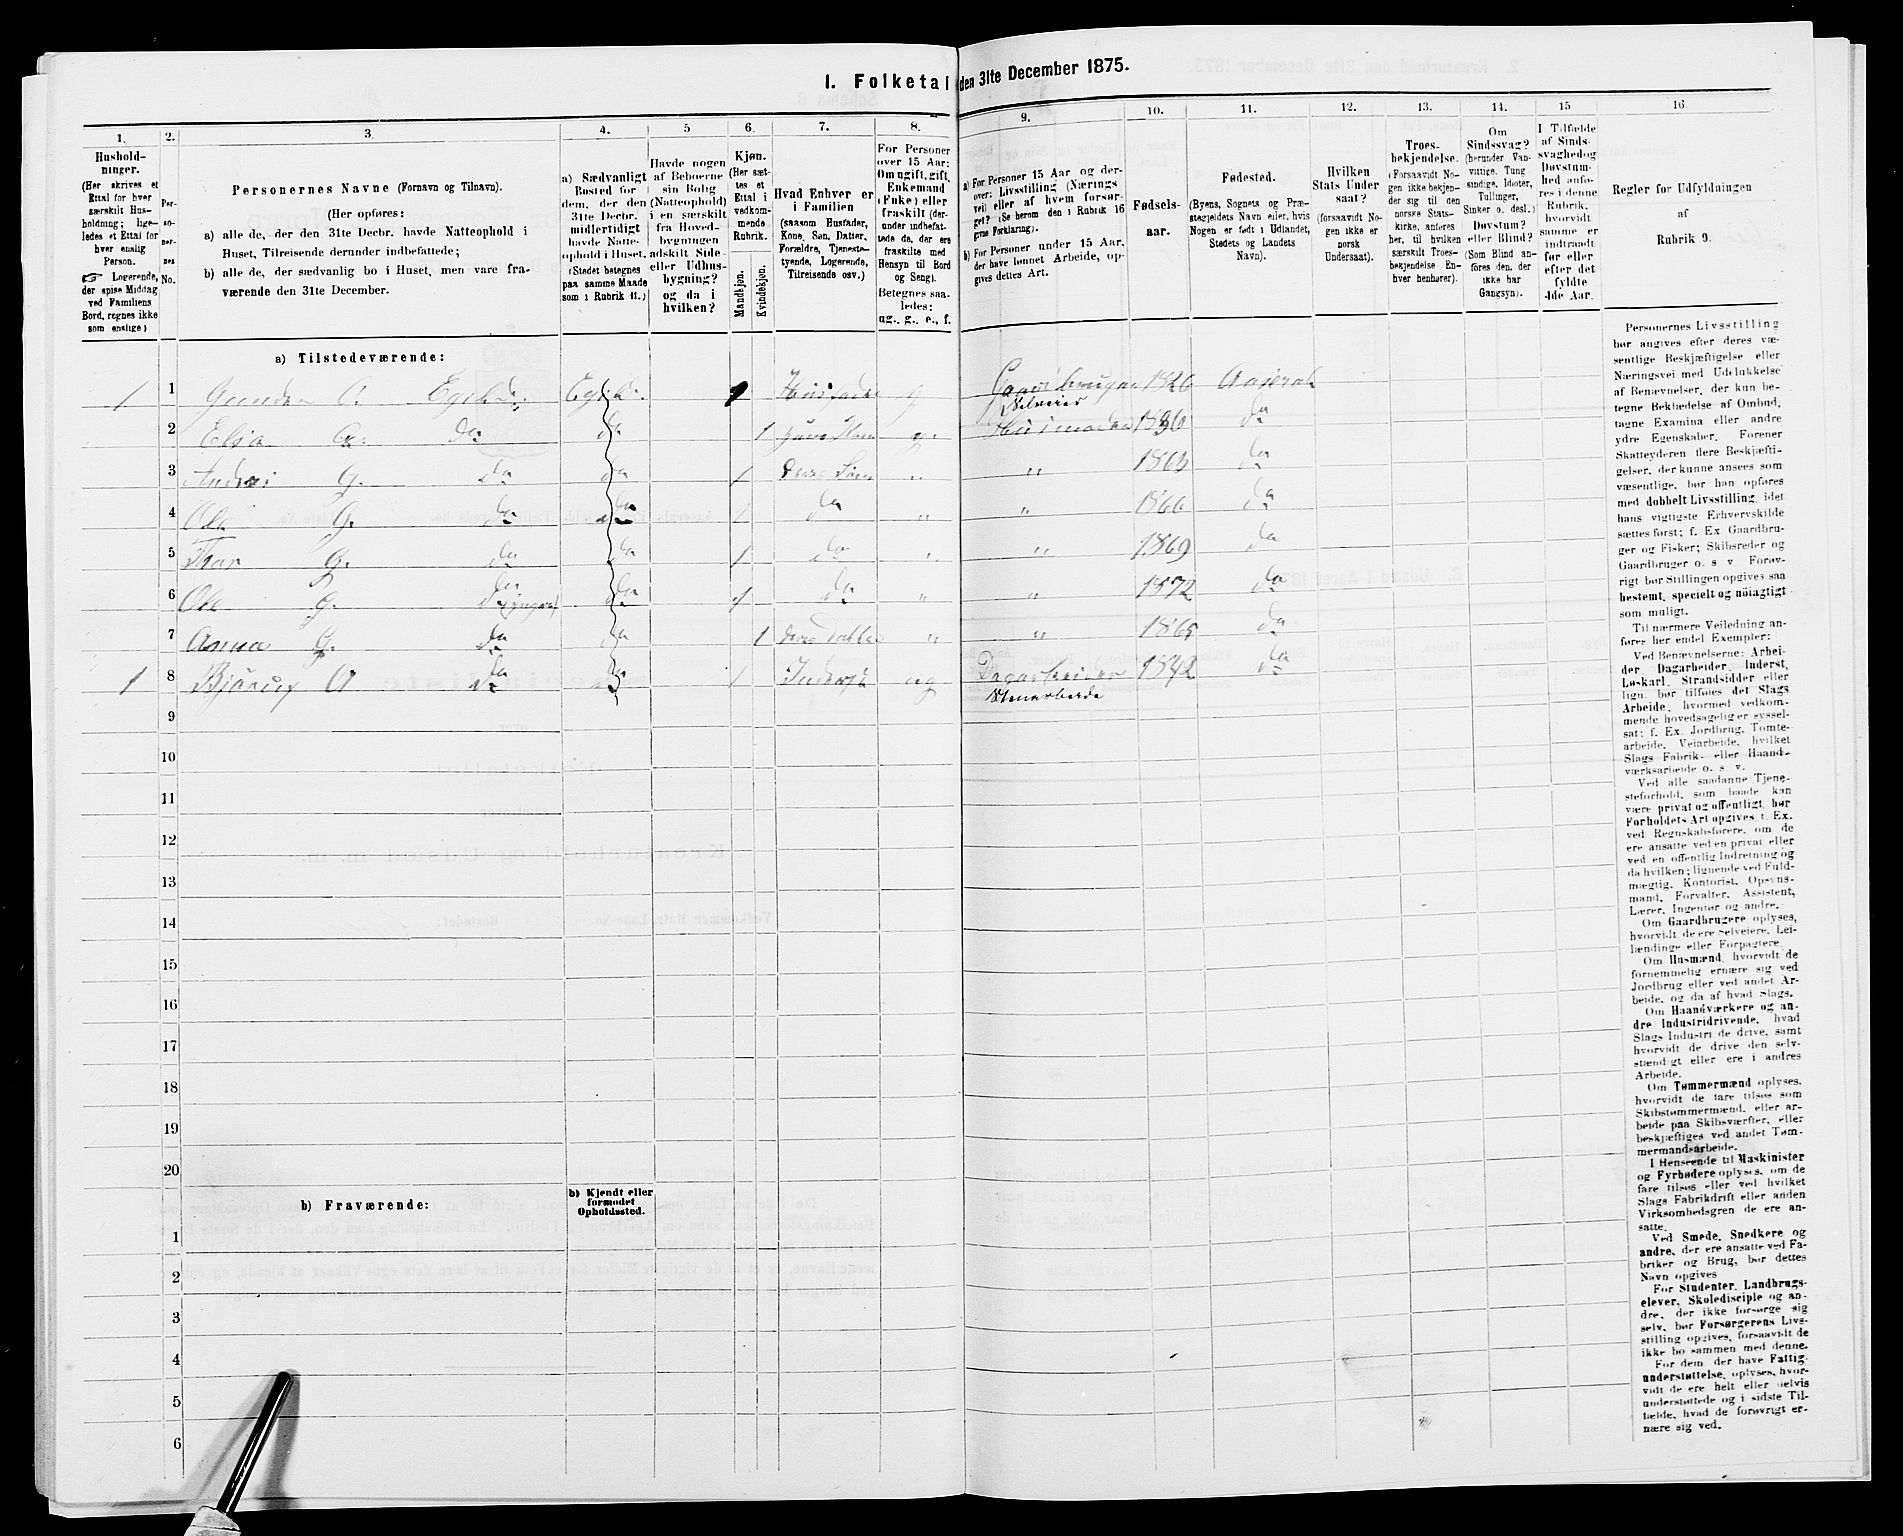 I. Folketal den 31te December 1875.
1.
2.
3.
4.
5
6.
7.
8.
9.
10.
11.
12.
13.
14.
15
16
Hushold-
ninger.
(Her skrives et
Ettal for hver
særskilt Hus-
holdning; lige-
ledes et Ettal for
hver enslig
Person.
☞ Logerende,
der spise Middag
ved Familiens
Bord, regnes ikke
som enslige)
Per-
so-
ner-
nes
No.
Personernes Navne (Fornavn og Tilnavn).
(Her opføres:
a) alle de, der den 31te Decbr. havde Natteophold i
Huset, Tilreisende derunder indbefattede;
b) alle de, der sædvanlig bo i Huset, men vare fra-
værende den 31te December.
a) Sædvanligt
Bosted for
dem, der den
31te Decbr.
midlertidigt
havde Natte-
ophold i Huset.
(Stedet betegnes
paa samme Maade
som i Rubrik 11.)
Havde nogen
af Beboerne
sin Bolig
(Natteophold)
i en særskilt
fra Hoved-
bygningen
adskilt Side-
eller Udhus-
bygning?
og da i
hvilken?
Kjøn.
(Her sæt-
tes et
Ettal i
vedkom-
mende
Rubrik.
Mandkjøn.
Kvindekjøn.
Hvad Enhver er
i Familien
(saasom Husfader,
Kone, Søn, Datter,
Forældre, Tjeneste-
tyende, Logerende,
Tilreisende osv.)
For Personer
over 15 Aar:
Om ugift, gift,
Enkemand
(Enke) eller
fraskilt (der-
under indbefat-
tede de, der ere
fraskilte med
Hensyn til Bord
og Seng).
Betegnes saa-
ledes:
ug., g., e., f.
a) For Personer 15 Aar og der-
over: Livsstilling (Nærings
vei) eller af hvem forsør-
get? (Se herom den i Rubrik 16
givne Forklaring).
b) For Personer under 15 Aar,
der have lønnet Arbeide, op-
gives dettes Art.
Fødsels-
aar.
Fødested.
(Byens, Sognets og Præ-
stegjeldets Navn eller, hvis
Nogen er født i Udlandet,
Stedets og Landets
Navn).
Hvilken
Stats Under
saat?
(forsaavidt No-
gen ikke er
norsk
Undersaat).
Troes-
bekjendelse.
(Forsaavidt No-
gen ikke bekjen-
der sig til den
norske Stats-
kirke, anføres
her, til hvilken
særskilt Troes-
bekjendelse En-
hver henhører).
Om
Sindssvag?
(herunder Van-
vittige, Tung
sindige, Idioter,
Tullinger,
Sinker o. desl.)
Døvstum?
eller Blind?
(Som Blind an-
føres den, der
ikke har
Gangsyn).
I Tilfælde
af Sinds-
svaghed og
Døvstum-
hed anfø-
res i denne
Rubrik,
hvorvidt
samme er
indtraadt
før eller
efter det
fyldte
4de Aar.
Regler for Udfyldningen
af
Rubrik 9.
a) Tilstedeværende:
1 1 Gunder Egeli Husfader g Gaardbruger 1826
Selveier
2 da da 1 g. Husmoder 1836 da
3 G. da da 1 Deres Søn „ „ 1863 da
4 Ole G. da da 1 da „ „ 1866 da
5 Thor G. da da 1 da „ „ 1869 da
6 Ole G. da da 1 da „ „ 1872 da
7 Anna G. da da 1 Deres „ „ 1865 da
1 8 A da 1 ug Dagarbeider 1842 da
Stenarbeide
9
10
11
12
13
14
15
16
17
18
19
20
b) Fraværende:
b) Kjendt eller
formodet
Opholdssted.
1
2
3
4
5
6
Personernes Livsstilling
bør angives efter deres væ-
sentlige Beskjæftigelse eller
Næringsvei med Udelukkelse
af Benævnelser, der kun be-
tegne Beklædelse af Ombud,
tagne Examina eller andre
ydre Egenskaber. Forener
Skatteyderen flere Beskjæfti-
gelser, der kunne ansees som
væsentlige, bør han opføres
med dobbelt Livsstilling, idet
hans vigtigste Erhvervskilde
sættes først; f. Ex Gaardbru-
ger og Fisker; Skibsreder og
Gaardbruger o. s v. Forøv-
rigt bør Stillingen opgives saa
bestemt, specielt og nøiagtigt
som muligt.
Til nærmere Veiledning an-
føres her endel Exempler:
Ved Benævnelserne: Arbei-
der, Dagarbeider, Inderst,
Løskarl, Strandsidder eller
lign. bør tilføies det Slags
Arbeide, hvormed vedkom-
mende hovedsagelig er syssel-
sat; f. Ex. Jordbrug, Tomte-
arbeide, Veiarbeide, hvilket
Slags Fabrik- eller Haand-
værksarbeide o. s. v.
Ved alle saadanne Tjene-
steforhold, som baade kan
være privat og offentligt, bør
Forholdets Art opgives, t. Ex.
ved Regnskabsførere, om de
ere ansatte ved en privat eller
ved en offentlig Indretning og
da hvilken; lignende ved Fuld-
mægtig, Kontorist, Opsyns-
mand, Forvalter, Assistent,
Lærer, Ingeniør og andre.
Om Gaardbrugere oplyses,
hvorvidt de ere Selveiere, Lei-
lændinge eller Forpagtere.
Om Husmænd, hvorvidt de
fornemmelig ernære sig ved
Jordbrug eller ved andet Ar-
beide, og da af hvad Slags.
Om Haandværkere og an-
dre Industridrivende, hvad
Slags Industri de drive, samt
hvorvidt de drive den selv-
stændigt eller ere i andres
Arbeide.
Om Tømmermænd oplyses,
hvorvidt de fare tilsøs som
Skibstømmermænd, eller ar-
beide paa Skibsværfter, eller
beskjæftiges ved andet Tøm-
mermandsarbeide.
I Henseende til Maskinister
og Fyrbødere oplyses, om de
fare tilsøs eller ved hvilket
Slags Fabrikdrift eller anden
Virksomhedsgren de ere an-
satte.
Ved Smede, Snedkere og
andre, der ere ansatte ved Fa-
briker og Brug, bør dettes
Navn opgives
For Studenter, Landbrugs-
elever, Skoledisciple og an-
dre, der ikke forsørge sig
selv, bør Forsørgerens Livs-
stilling opgives, forsaavidt de
ikke bo sammen med denne.
For dem, der have Fattig-
understøttelse, oplyses, hvor-
vidt de ere helt eller delvis
understøttede og i sidste Til-
fælde, hvad de forøvrigt er-
nære sig ved.